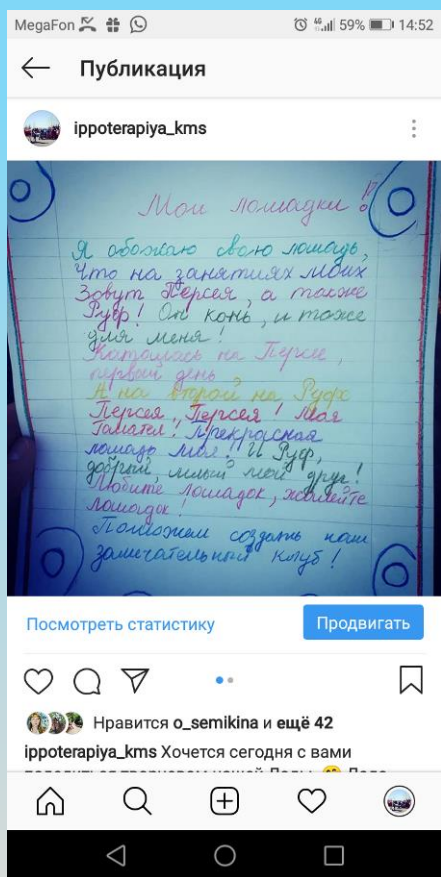 MegaFon
46 59% 14:52
Публикация
ippoterapiya_kms
Мои лошадки!
Я обожаю свою лошадь,
Что на занятиях моих
Зовут Персея, а также
Руф! Он конь, и тоже
для меня!
Катаюсь на Персее,
первый день,
А на второй на Руфе
Персея, Персея! Моя
прекрасная
лошадь моя! И Руф,
добрый, милый мой друг!
Любите лошадок, жалейте
лошадок!
Поможем создать нам
замечательный клуб!
Посмотреть статистику
Продвигать
Нравится o_semikina и ещё 42
ippoterapiya_kms Хочется сегодня с вами